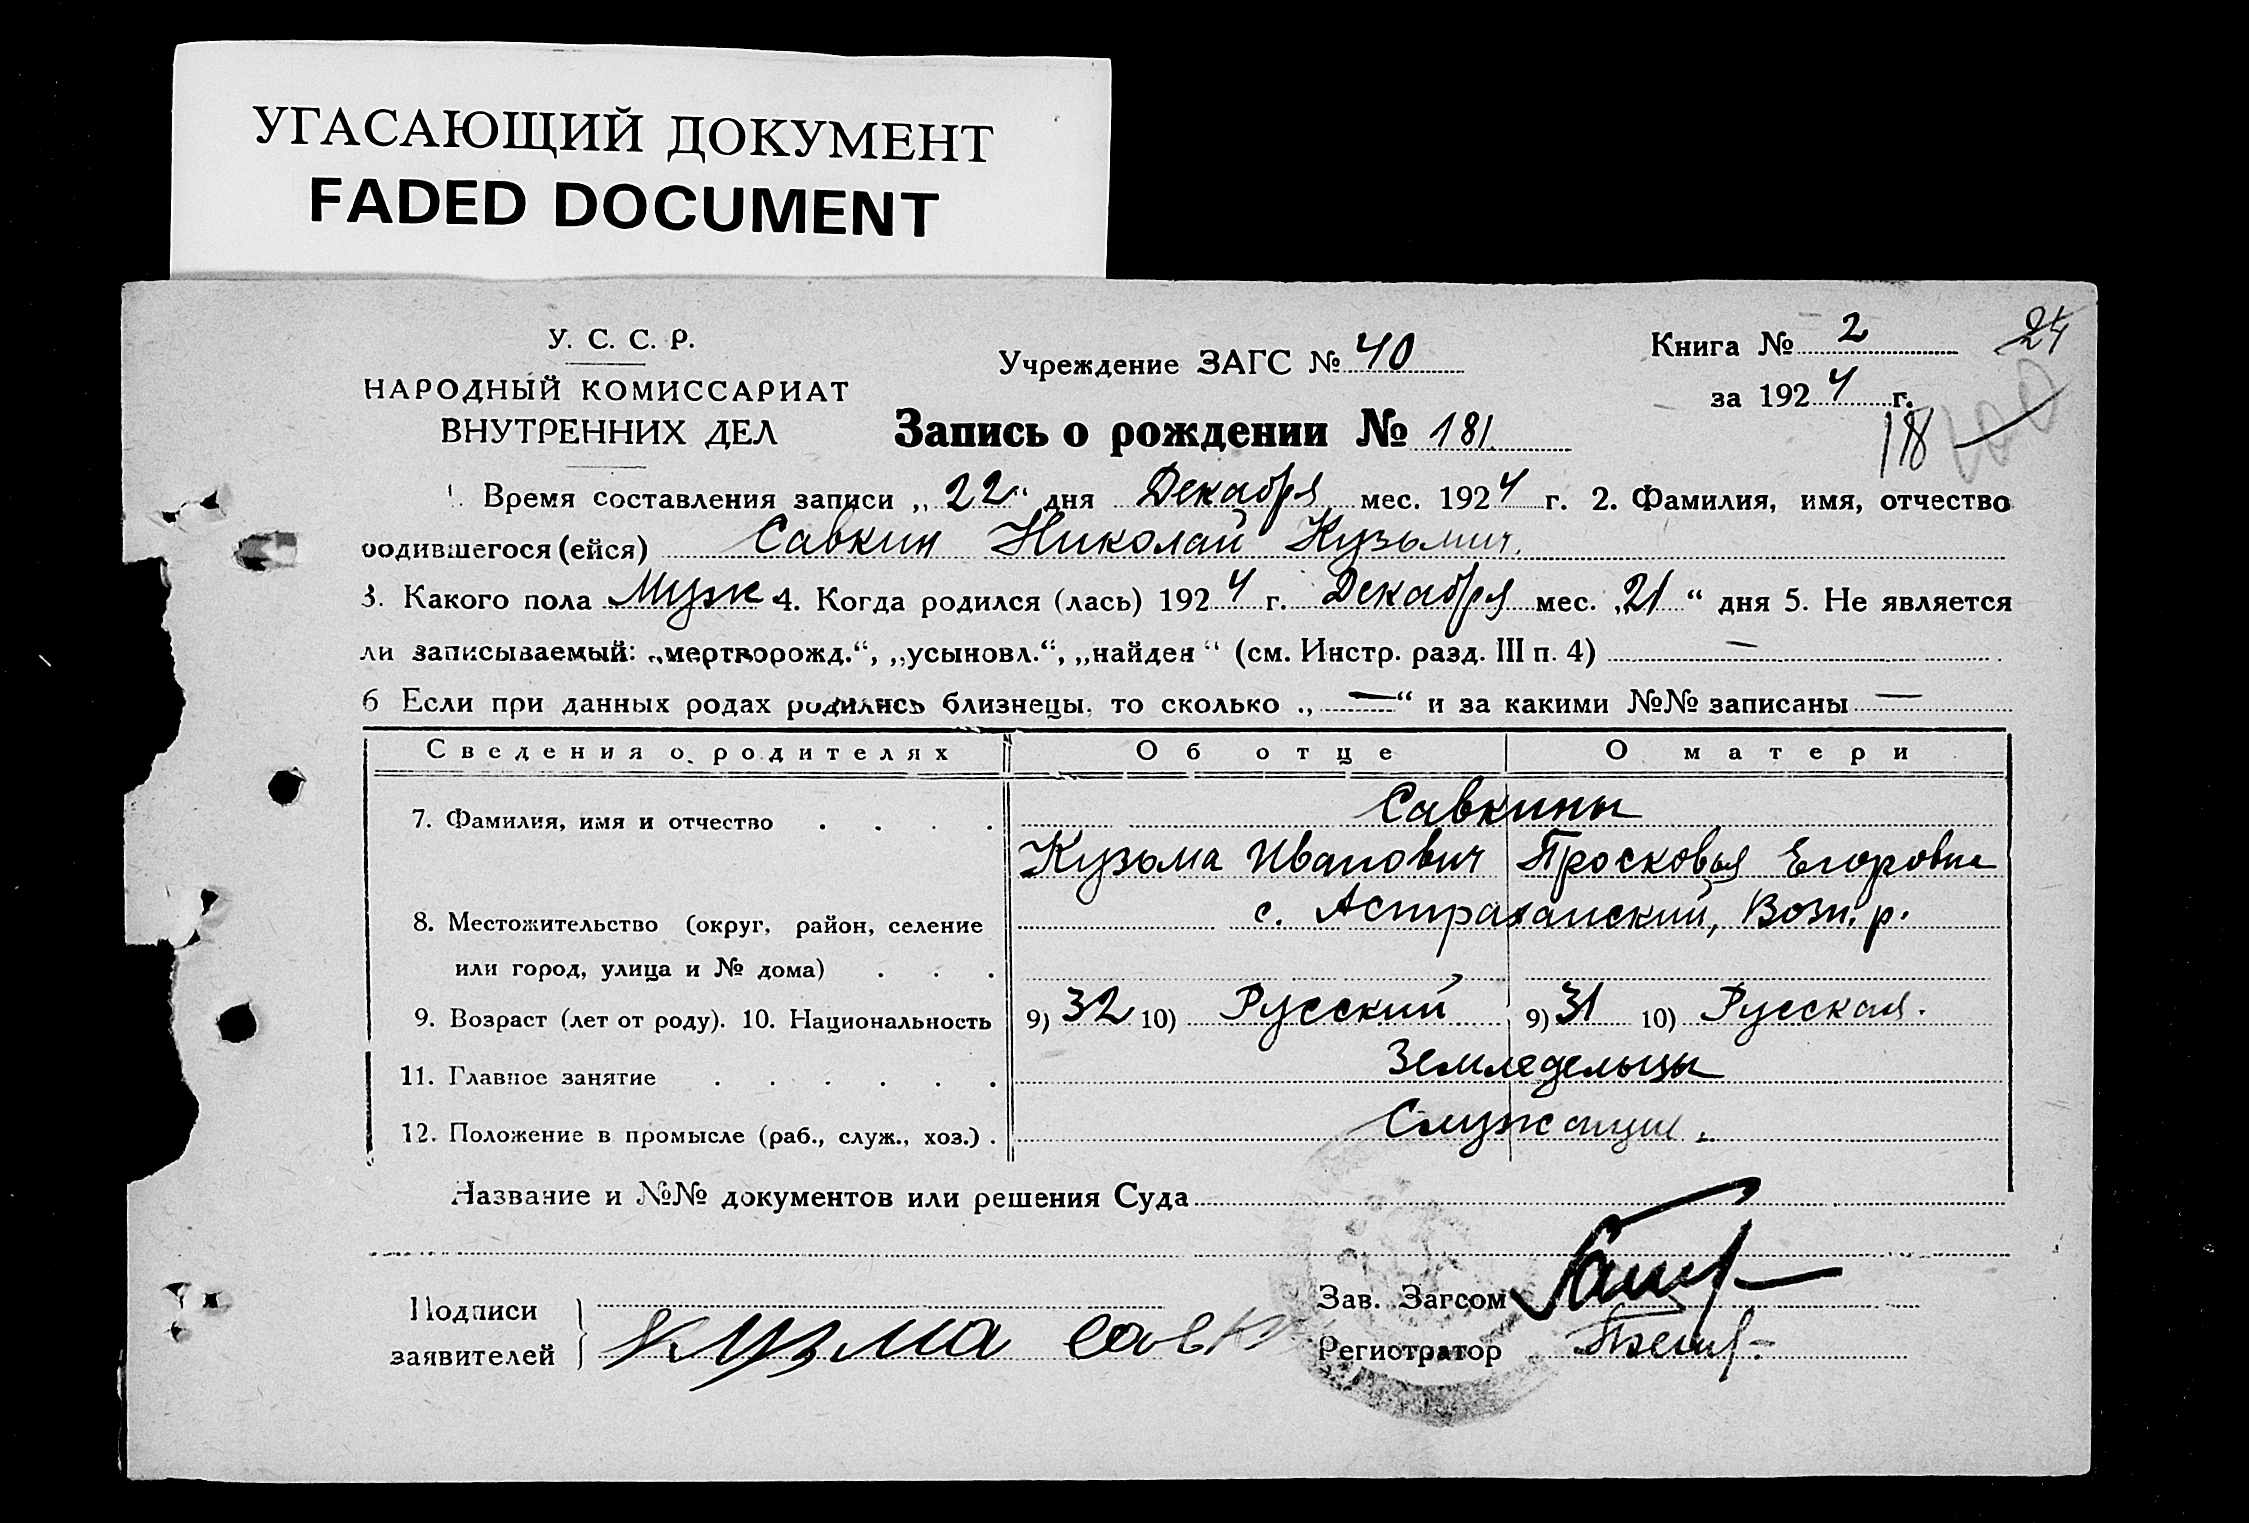 УГАСАЮЩИЙ ДОКУМЕНТ
FADED DOCUMENT
У. С. С. Р.
НАРОДНЫЙ КОМИССАРИАТ
ВНУТРЕННИХ ДЕЛ
Учреждение ЗАГС № 40
Книга № 2
24
за 1924 г.
Запись о рождении № 181.
118
100
1. Время составления записи „22“ дня Декабря мес. 1924 г. 2. Фамилия, имя, отчество
родившегося (ейся) Савкин Николай Кузьмич.
3. Какого пола Муж 4. Когда родился (лась) 1924 г. Декабря мес. „21“ дня 5. Не является
ли записываемый: „мертворожд.“, „усыновл.“, „найден“ (см. Инстр. разд. III п. 4) —
6 Если при данных родах родились близнецы, то сколько „—“ и за какими №№ записаны —
Сведения о родителях Об отце О матери
7. Фамилия, имя и отчество . . . . Савкины
Кузьма Иванович Просковья Егоровна
8. Местожительство (округ, район, селение с. Астраханский, Возн. р.
или город, улица и № дома) . . .
9. Возраст (лет от роду). 10. Национальность 9) 32 10) Русский 9) 31 10) Русская.
11. Главное занятие . . . . . . Земледельцы
12. Положение в промысле (раб., служ., хоз.) . Служащие.
Название и №№ документов или решения Суда
Подписи
заявителей } Кузма Савк
Зав. Загсом
Регистратор